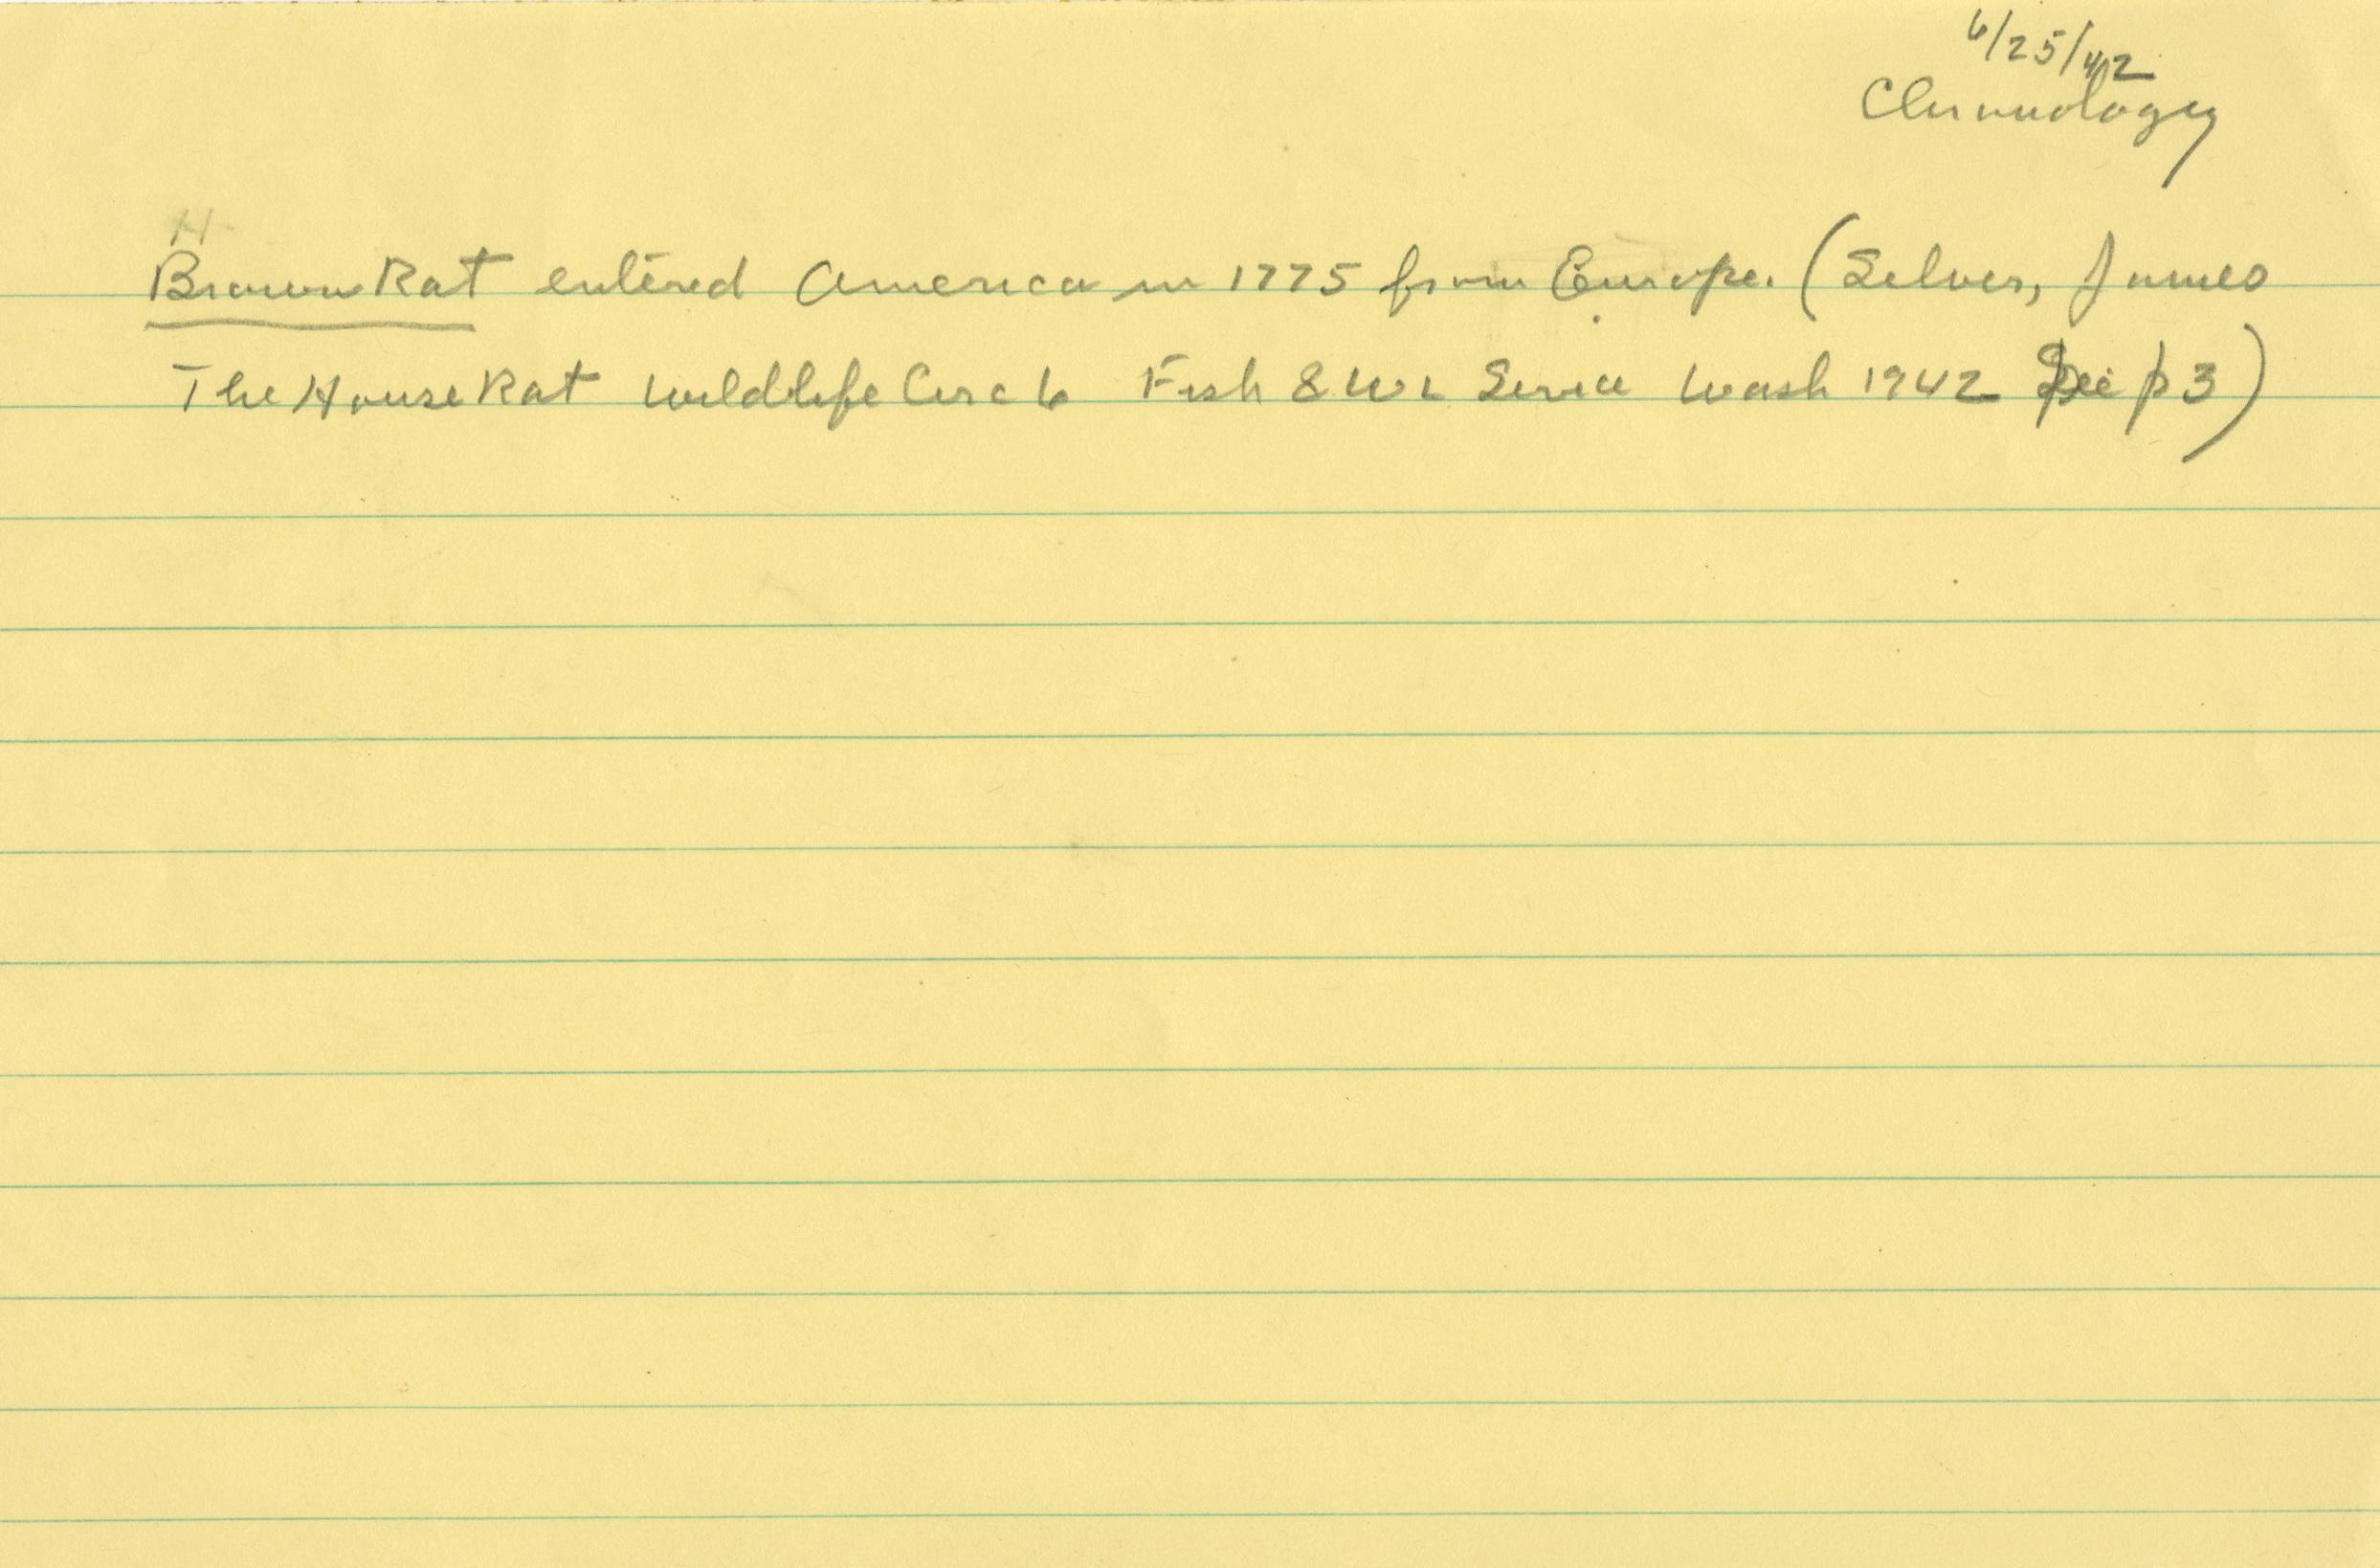 6/25/42
Chronology
H
Brown Rat entered America in 1775 from Europe. (Silver, James
The House Rat Wildlife Circ 6 Fish & WL Service Wash 1942 See p 3)